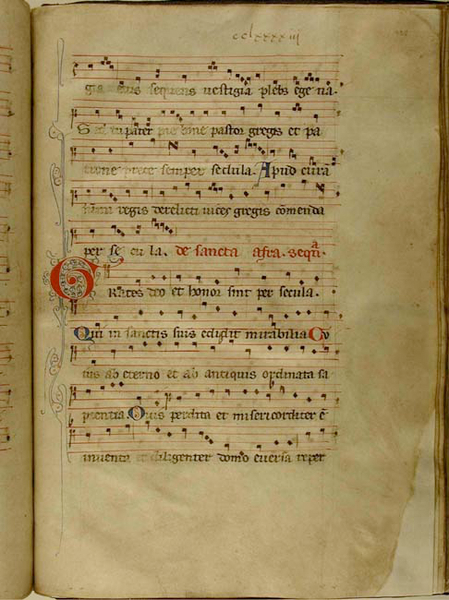 cclxxxxiii
gia cuius sequens uestigia plebs ege na.
S tu pater pie bone pastor gregis et pa
trone prece semper secula. Apud cura
regis derelicti uices gregis comenda
per se cu la. de sancta afra. seqn̄
GRates deo et honor sint per secula.
Qui in sanctis suis edidit mirabilia Cu
ius ab eterno et ab antiquis ordinata sa
pientia. Quis perdita et misericorditer ē
inuenta et diligenter domo euersa reper